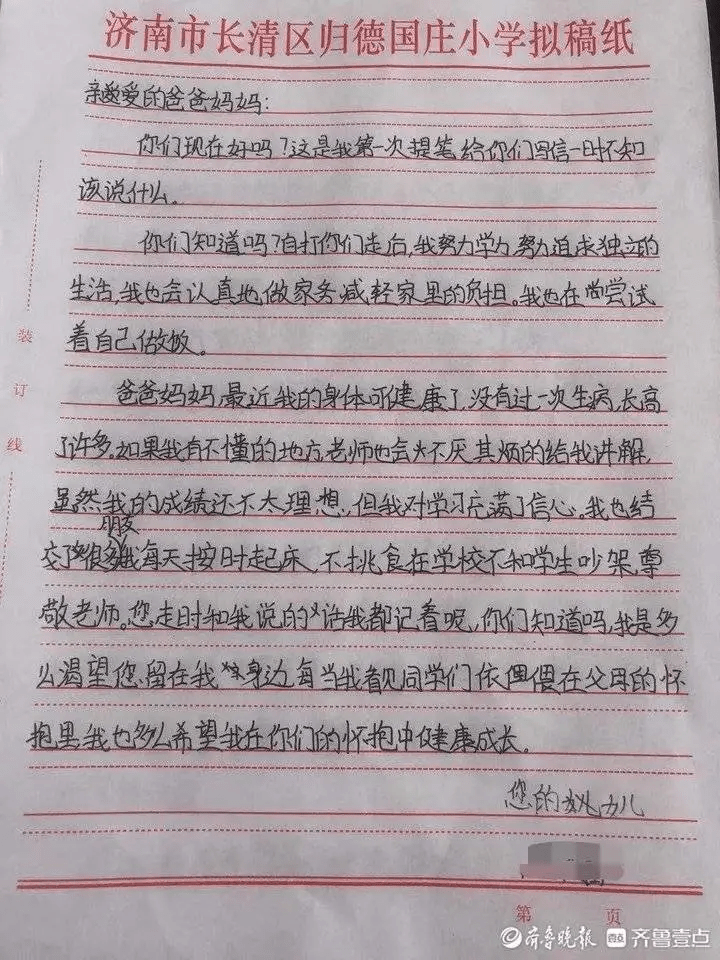 济南市长清区归德国庄小学拟稿纸
亲爱的爸爸妈妈:
你们现在好吗?这是我第一次提笔给你们写信一时不知
该说什么。
你们知道吗?自打你们走后,我努力学力努力追求独立的
生活,我也会认真地做家务减轻家里的负担。我也在尝试
着自己做饭。
爸爸妈妈,最近我的身体可健康了,没有过一次生病,长高
了许多,如果我有不懂的地方,老师也会不厌其烦的给我讲解,
虽然我的成绩还不太理想,但我对学习充满了信心。我也结
朋友
交了很多我每天按时起床,不挑食在学校不和学生吵架,尊
敬老师。您走时和我说的话我都记着呢,你们知道吗,我是多
么渴望您留在我身边每当我看见同学们依偎在父母的怀
抱里,我也多么希望我在你们的怀抱中健康成长。
您的女儿
装
订
线
第 页
齐鲁晚报 壹点 齐鲁壹点